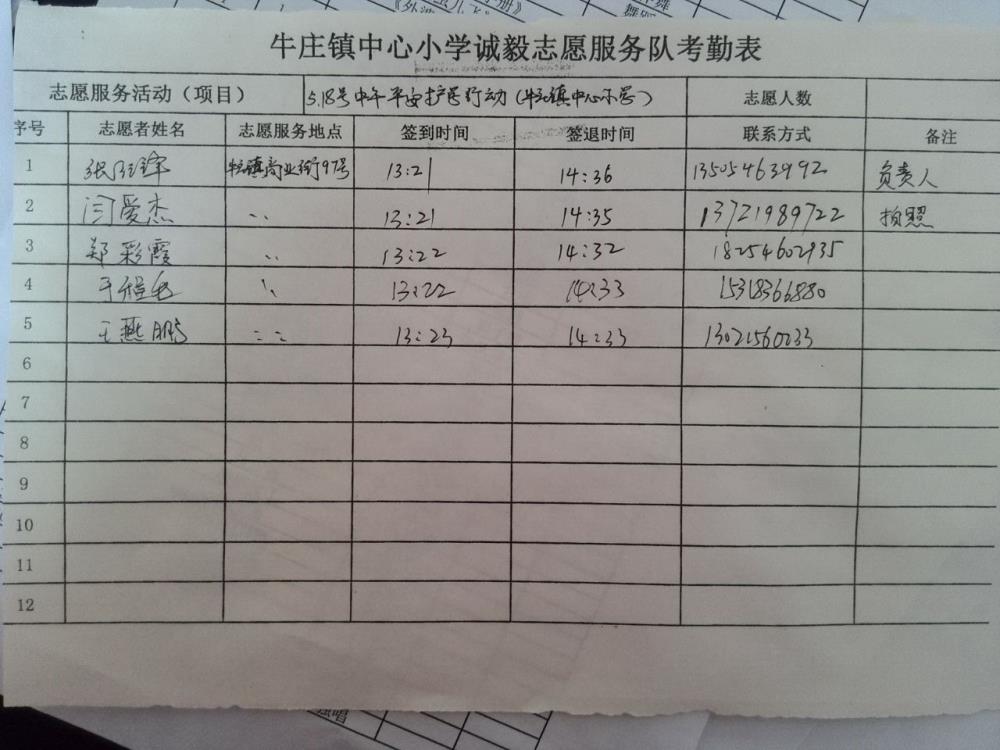 牛庄镇中心小学诚毅志愿服务队考勤表
志愿服务活动（项目） 5.18号中午平安护学行动（牛庄镇中心小学） 志愿人数
序号 志愿者姓名 志愿服务地点 签到时间 签退时间 联系方式 备注
1 牛庄镇商业街97号 13:21 14:36 13505463992 负责人
2 闫爱杰 〃 13:21 14:35 13721989722 拍照
3 郑彩霞 〃 13:22 14:32 18254602935
4 〃 13:22 14:33 15318366880
5 王燕鹏 〃 13:23 14:33 13021560033
6
7
8
9
10
11
12